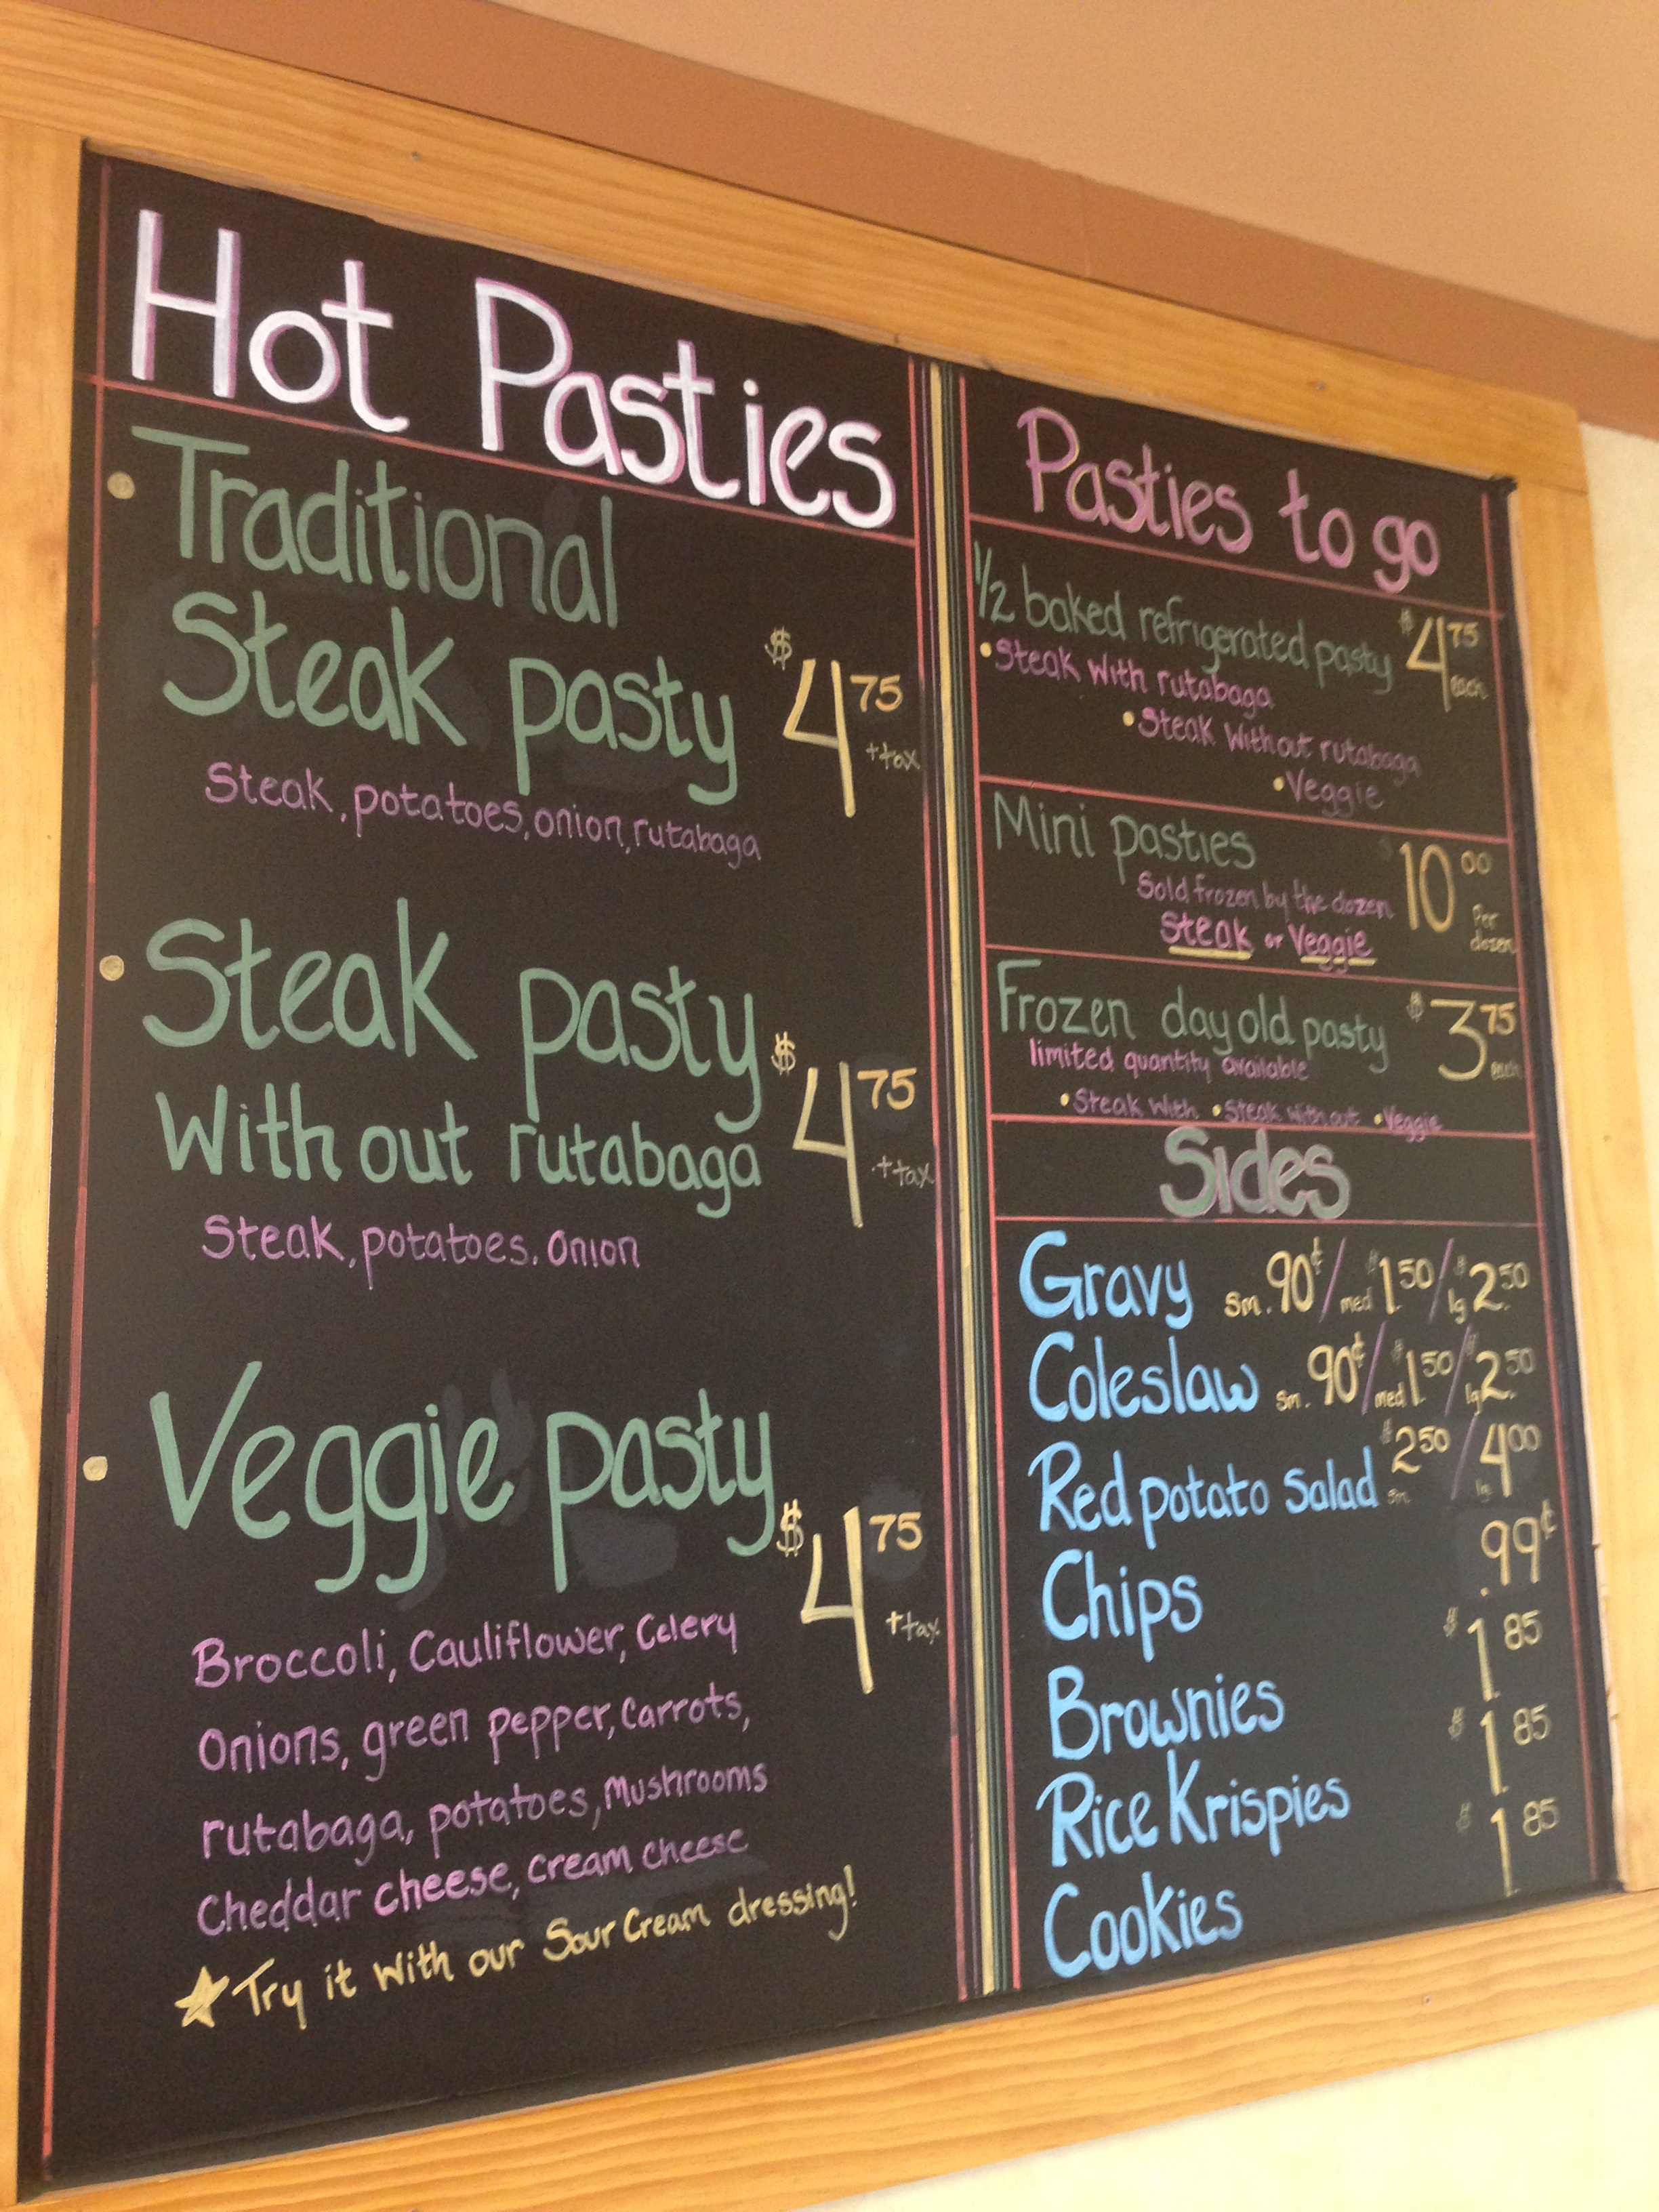 Hot Pasties
• Traditional
Steak pasty $4.75
+tax
Steak, potatoes, onion, rutabaga
• Steak pasty
Without rutabaga $4.75
+tax
Steak, potatoes. Onion
• Veggie pasty
$4.75
+tax
Broccoli, Cauliflower, Celery
Onions, green pepper, Carrots,
rutabaga, potatoes, Mushrooms
Cheddar cheese, cream cheese
☆ Try it With our Sour Cream dressing!
Pasties to go
1/2 baked refrigerated pasty $4.75
each
• Steak With rutabaga
• Steak Without rutabaga
• Veggie
Mini pasties $10.00
Sold frozen by the dozen
Per
dozen
Steak or Veggie
Frozen day old pasty $3.75
each
limited quantity available
• Steak With • Steak Without • Veggie
Sides
Gravy Sm. 90¢ / med $1.50 / lg $2.50
Coleslaw Sm. 90¢ / med $1.50 / lg $2.50
Red potato Salad $2.50 sm. / 4.00 lg
Chips .99¢
Brownies $1.85
Rice Krispies $1.85
Cookies $1.85